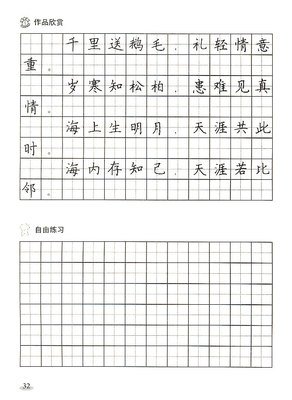 作品欣赏
千里送鹅毛，礼轻情意
重。
岁寒知松柏，患难见真
情。
海上生明月，天涯共此
时。
海内存知己，天涯若比
邻。
自由练习
32